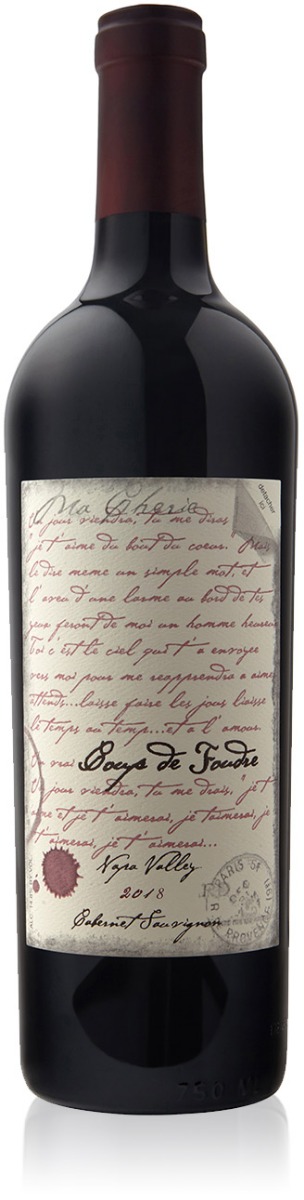 Ma Cherie
détacher
ici
Un jour viendra, tu me diras
je t'aime du bout du coeur. Mais
le dire meme un simple mot, et
l'aveu d'une larme au bord de tes
yeux feront de moi un homme heureux
Toi c'est le ciel qui t'a envoyer
vers moi pour me reapprendra a aimer
attends...laisse faire les jour liaisse
le temps au temps...et a l'amour.
Un vrai Coup de Foudre
Un jour viendra, tu me drais, "je t'
aime et je t'aimerai, je taimerai, je
t'aimerai, je t'aimerai...
Napa Valley
2018
Cabernet Sauvignon
PARIS
PROVENCE
750 ML